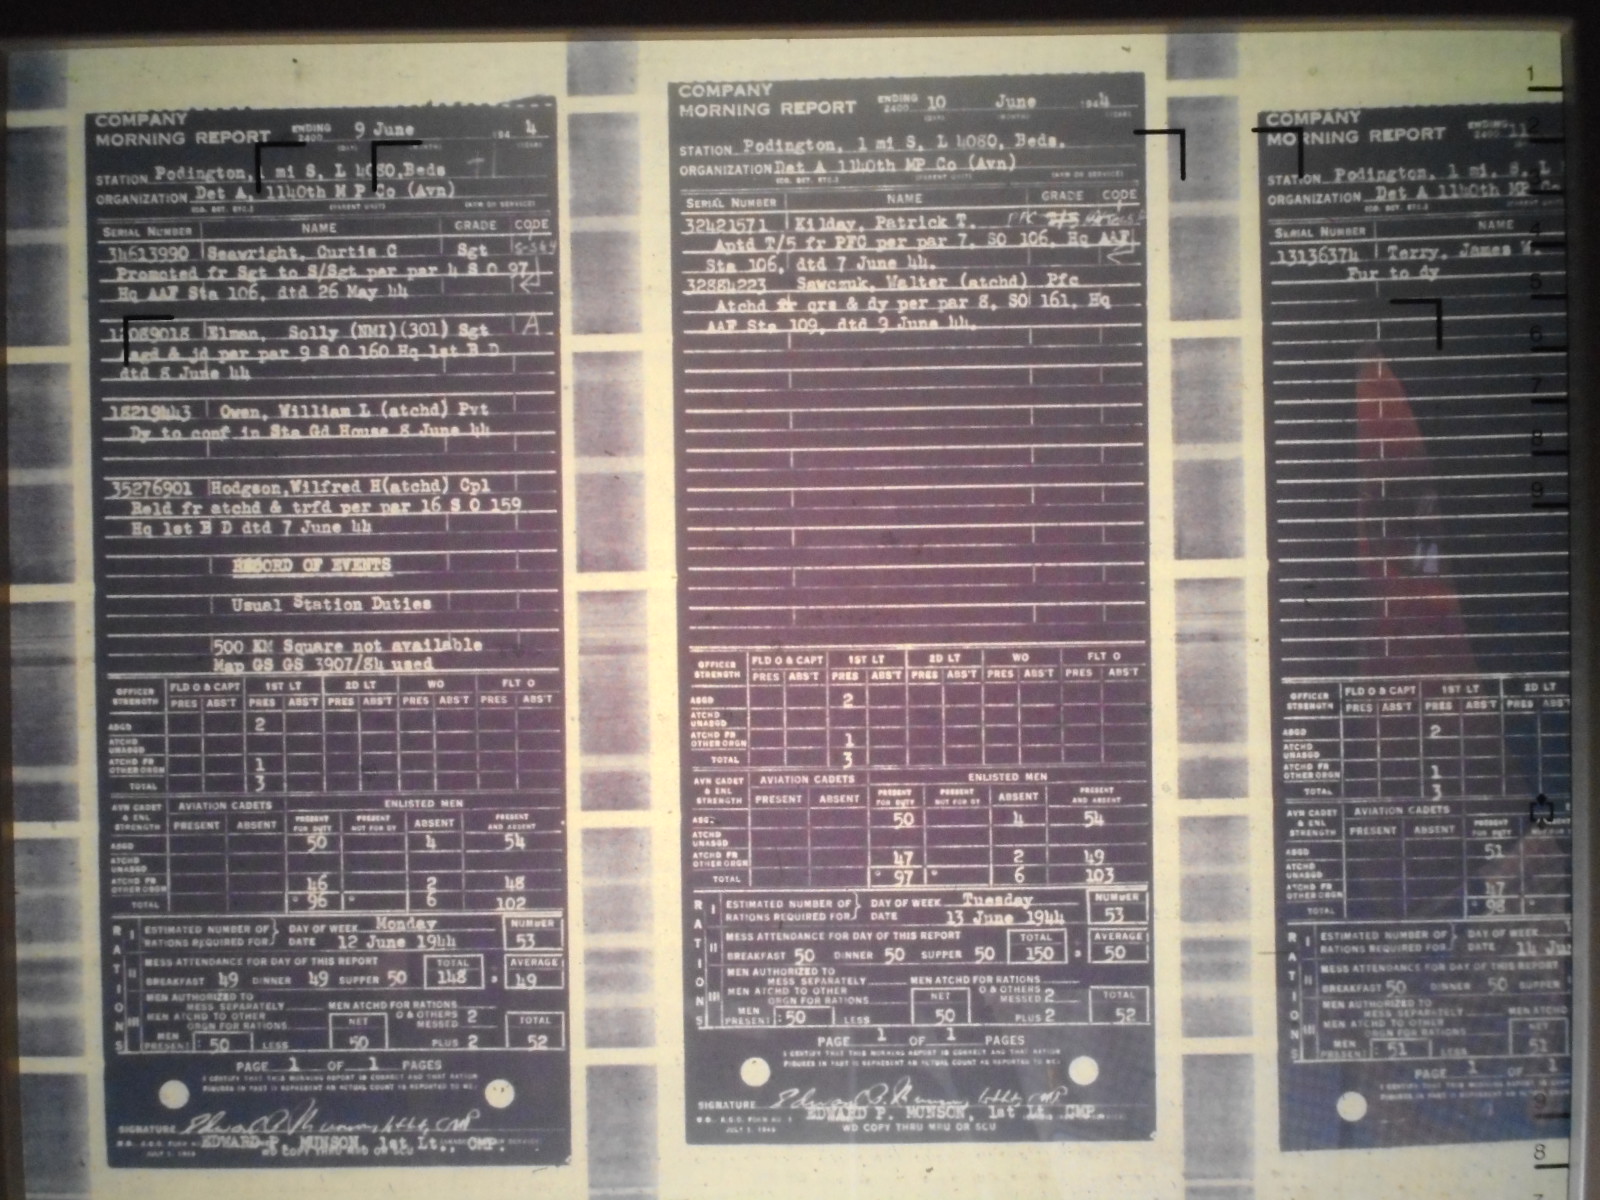 COMPANY
MORNING REPORT ENDING 2400 9 June 194 4
STATION Podington, 1 mi S, L 4080, Beds
ORGANIZATION Det A, 1140th M P Co (Avn)
SERIAL NUMBER NAME GRADE CODE
34613990 Seawright, Curtis C Sgt
Promoted fr Sgt to S/Sgt per par 4 S O 97
Hq AAF Sta 106, dtd 26 May 44
Elman, Solly (NMI)(301) Sgt A
& jd per par 9 S O 160 Hq 1st B D
dtd 8 June 44
18219443 Owen, William L (atchd) Pvt
Dy to conf in Sta Gd House 8 June 44
35276901 Hodgson, Wilfred H(atchd) Cpl
Reld fr atchd & trfd per par 16 S O 159
Hq 1st B D dtd 7 June 44
RECORD OF EVENTS
Usual Station Duties
500 KM Square not available
Map GS GS 3907/84 used
OFFICER STRENGTH FLD O & CAPT 1ST LT 2D LT WO FLT O
PRES ABS'T PRES ABS'T PRES ABS'T PRES ABS'T PRES ABS'T
ASGD 2
ATCHD UNASGD
ATCHD FR OTHER ORGN 1
TOTAL 3
AVN CADET & ENL STRENGTH AVIATION CADETS ENLISTED MEN
PRESENT ABSENT PRESENT FOR DUTY PRESENT NOT FOR DY ABSENT PRESENT AND ABSENT
ASGD 50 4 54
ATCHD UNASGD
ATCHD FR OTHER ORGN 46 2 48
TOTAL 96 6 102
RATIONS
I ESTIMATED NUMBER OF RATIONS REQUIRED FOR DAY OF WEEK Monday NUMBER
DATE 12 June 1944 53
II MESS ATTENDANCE FOR DAY OF THIS REPORT TOTAL AVERAGE
BREAKFAST 49 DINNER 49 SUPPER 50 148 49
III MEN AUTHORIZED TO MESS SEPARATELY MEN ATCHD FOR RATIONS
MEN ATCHD TO OTHER ORGN FOR RATIONS NET O & OTHERS MESSED 2 TOTAL
MEN PRESENT 50 LESS 50 PLUS 2 52
PAGE 1 OF 1 PAGES
I CERTIFY THAT THIS MORNING REPORT IS CORRECT AND THAT RATION
FIGURES IN PART III REPRESENT AN ACTUAL COUNT AS REPORTED TO ME.
SIGNATURE
EDWARD P. MUNSON, 1st Lt., CMP.
COMPANY
MORNING REPORT ENDING 2400 10 June 194 4
STATION Podington, 1 mi S, L 4080, Beds.
ORGANIZATION Det A 1140th MP Co (Avn)
SERIAL NUMBER NAME GRADE CODE
32421571 Kilday, Patrick T. PFC
Aptd T/5 fr PFC per par 7, SO 106, Hq AAF
Sta 106, dtd 7 June 44.
32884223 Sawczuk, Walter (atchd) Pfc
Atchd qrs & dy per par 8, SO 161, Hq
AAF Sta 109, dtd 9 June 44.
OFFICER STRENGTH FLD O & CAPT 1ST LT 2D LT WO FLT O
PRES ABS'T PRES ABS'T PRES ABS'T PRES ABS'T PRES ABS'T
ASGD 2
ATCHD UNASGD
ATCHD FR OTHER ORGN 1
TOTAL 3
AVN CADET & ENL STRENGTH AVIATION CADETS ENLISTED MEN
PRESENT ABSENT PRESENT FOR DUTY PRESENT NOT FOR DY ABSENT PRESENT AND ABSENT
ASGD 50 4 54
ATCHD UNASGD
ATCHD FR OTHER ORGN 47 2 49
TOTAL 97 6 103
RATIONS
I ESTIMATED NUMBER OF RATIONS REQUIRED FOR DAY OF WEEK Tuesday NUMBER
DATE 13 June 1944 53
II MESS ATTENDANCE FOR DAY OF THIS REPORT TOTAL AVERAGE
BREAKFAST 50 DINNER 50 SUPPER 50 150 50
III MEN AUTHORIZED TO MESS SEPARATELY MEN ATCHD FOR RATIONS
MEN ATCHD TO OTHER ORGN FOR RATIONS NET O & OTHERS MESSED 2 TOTAL
MEN PRESENT 50 LESS 50 PLUS 2 52
PAGE 1 OF 1 PAGES
I CERTIFY THAT THIS MORNING REPORT IS CORRECT AND THAT RATION
FIGURES IN PART III REPRESENT AN ACTUAL COUNT AS REPORTED TO ME.
SIGNATURE
EDWARD P. MUNSON, 1st Lt. CMP.
WD COPY THRU MRU OR SCU
COMPANY
MORNING REPORT ENDING 2400 11
STATION Podington, 1 mi. S, L
ORGANIZATION Det A 1140th MP
SERIAL NUMBER NAME
13136374 Terry, James
Fur to dy
OFFICER STRENGTH FLD O & CAPT 1ST LT 2D LT
PRES ABS'T PRES ABS'T PRES ABS'T
ASGD 2
ATCHD UNASGD
ATCHD FR OTHER ORGN 1
TOTAL 3
AVN CADET & ENL STRENGTH AVIATION CADETS
PRESENT ABSENT PRESENT FOR DUTY
ASGD 51
ATCHD UNASGD
ATCHD FR OTHER ORGN 47
TOTAL 98
RATIONS
I ESTIMATED NUMBER OF RATIONS REQUIRED FOR DAY OF WEEK
DATE 14
MESS ATTENDANCE FOR DAY OF THIS REPORT
BREAKFAST 50 DINNER 50 SUPPER
MEN AUTHORIZED TO MESS SEPARATELY MEN ATCHD
MEN ATCHD TO OTHER ORGN FOR RATIONS NET
MEN PRESENT 51 LESS 51
PAGE 1 OF 1
1
2
4
5
6
7
8
9
8